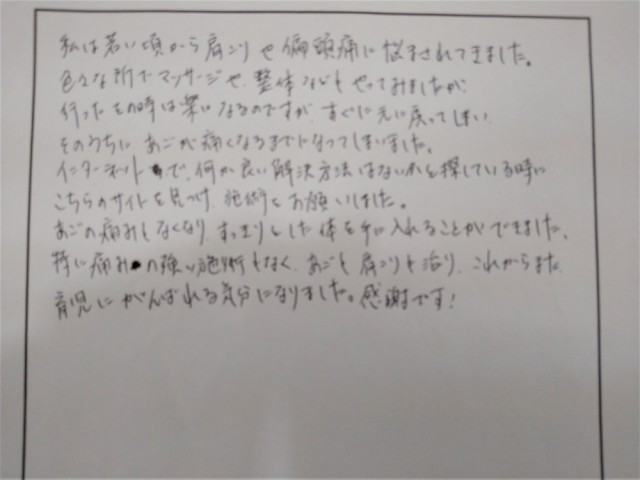 私は若い頃から肩こりや偏頭痛に悩まされてきました。
色々な所でマッサージや、整体などもやってみましたが
行ったその時は楽になるのですが、すぐに元に戻ってしまい
そのうちに あごが痛くなるまでになってしまいました。
インターネットで、何か良い解決方法はないかを探している時に
こちらのサイトを見つけ、施術をお願いしました。
あごの痛みもなくなり すっきりとした体を手に入れることができました、
特に痛みの強い施術もなく、あごも肩こりも治り、これからまた
育児にがんばれる気分になりました。感謝です!